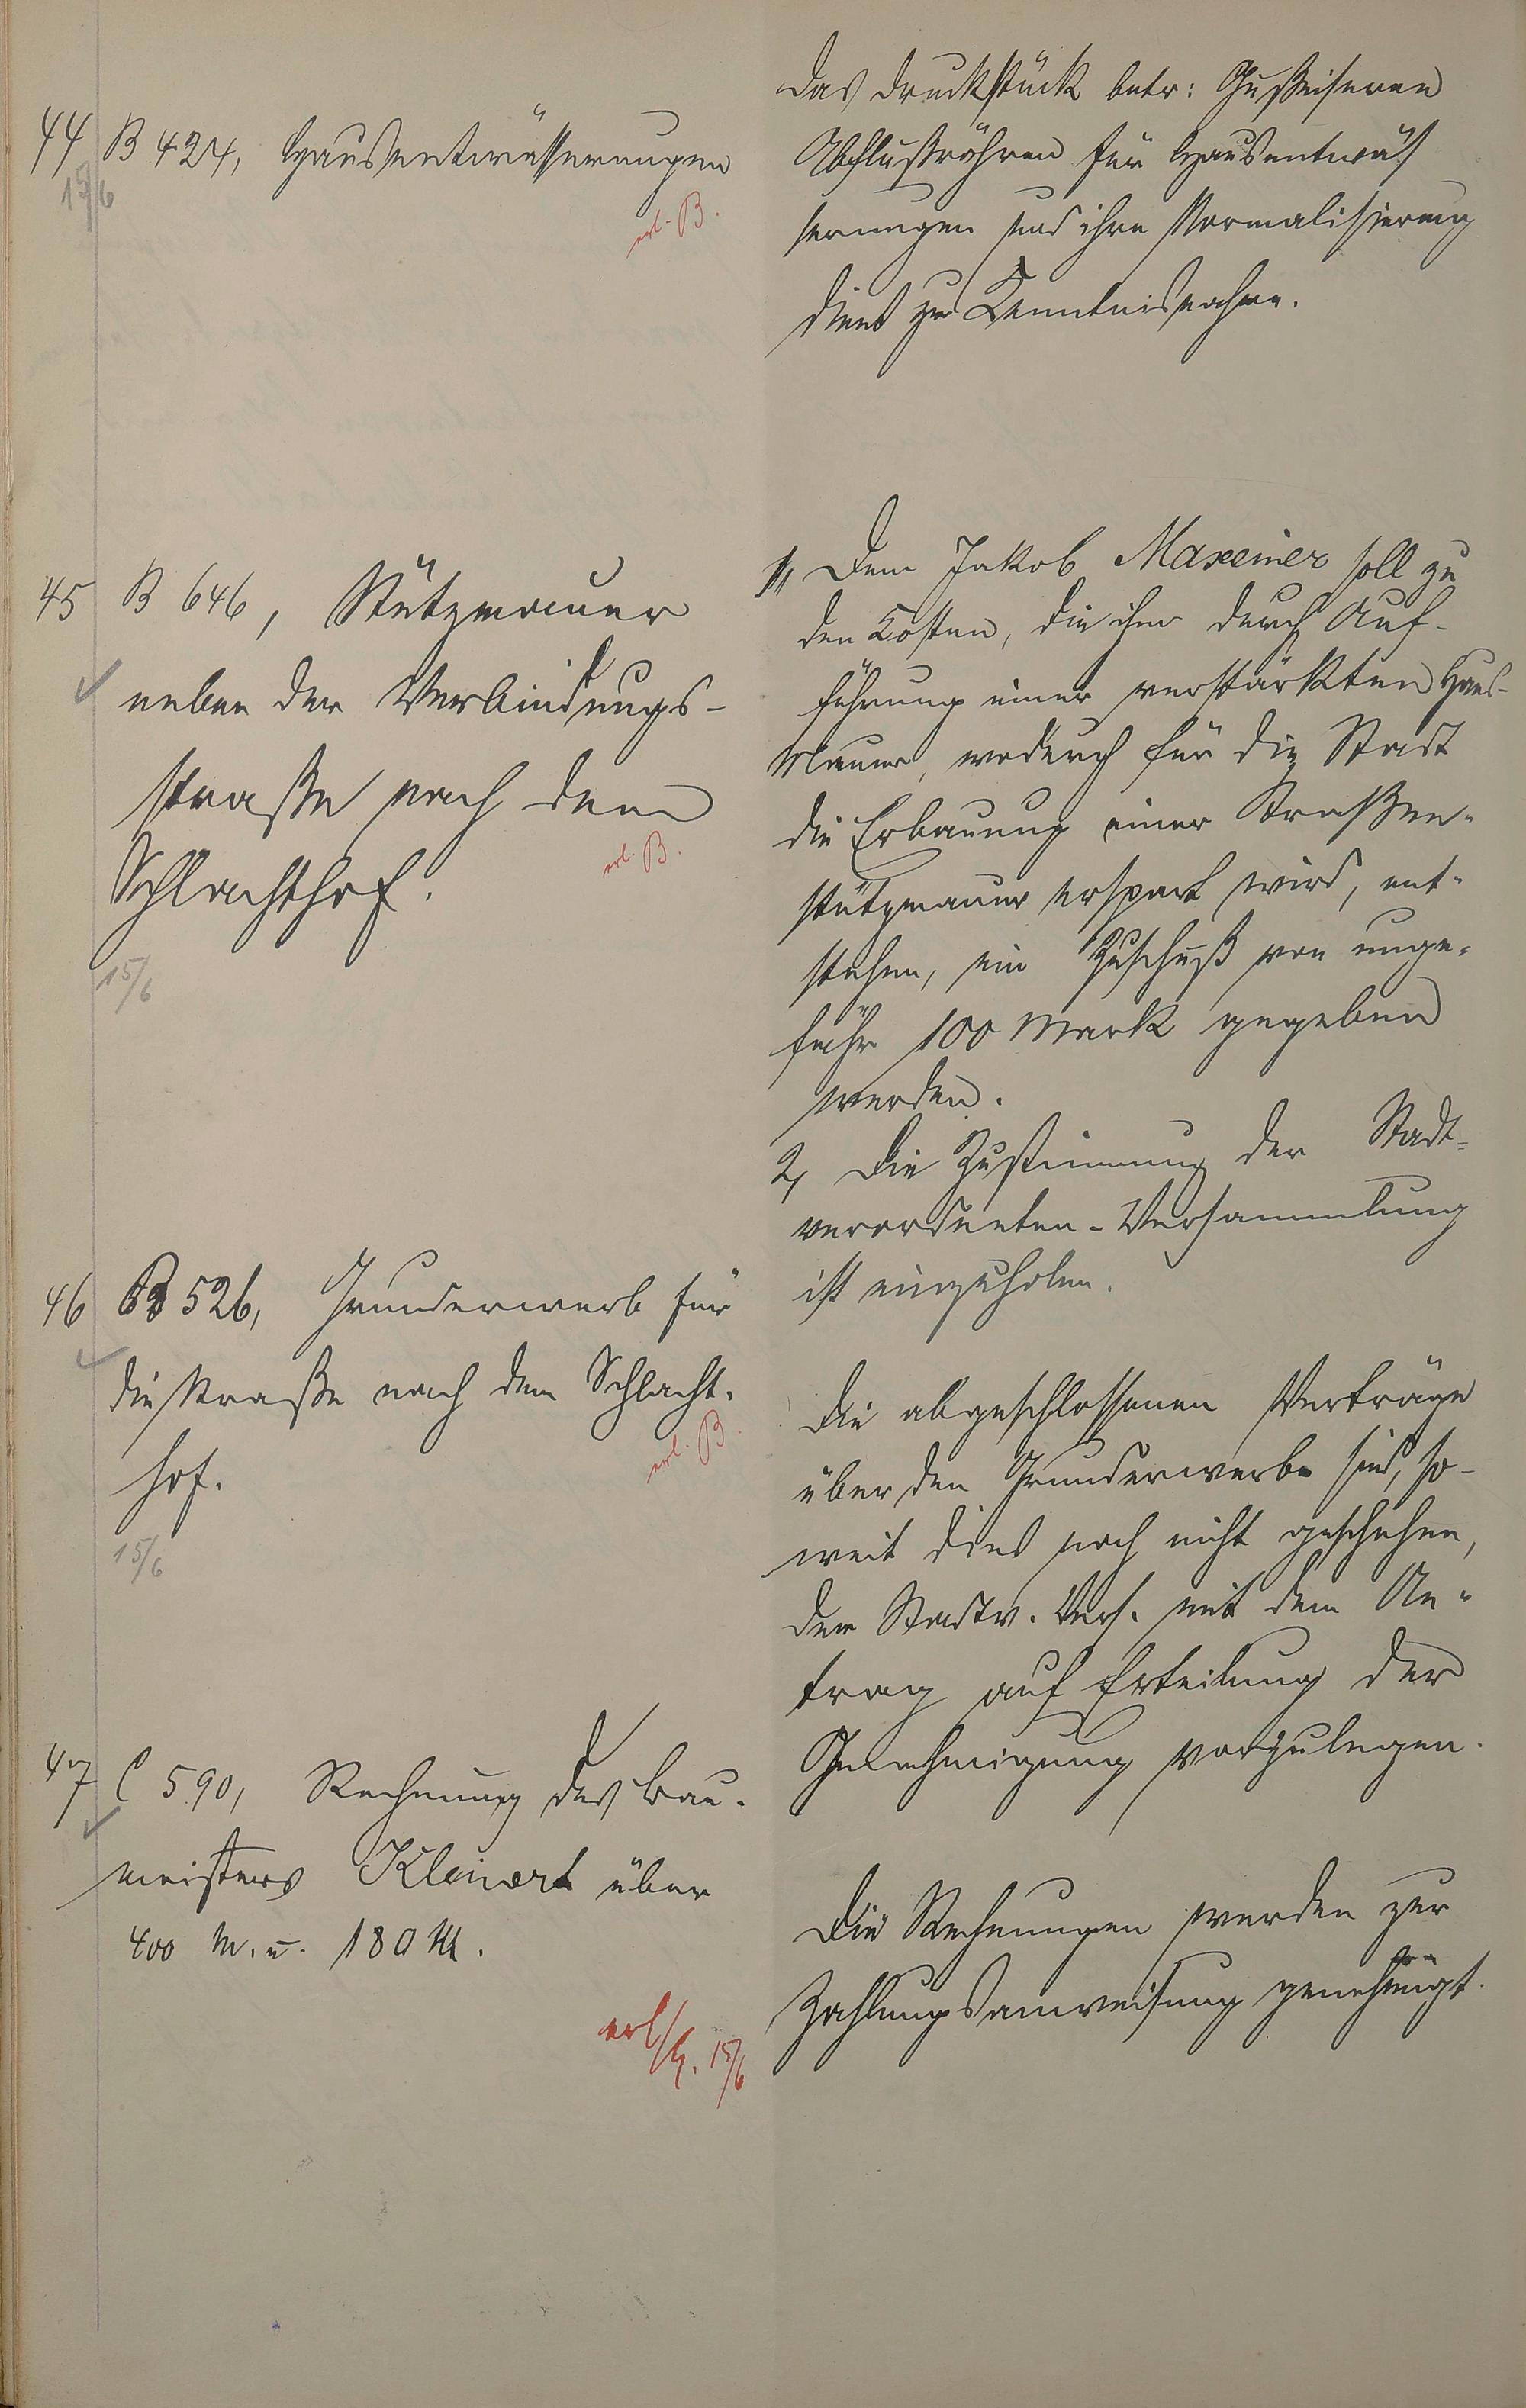 44 B 424, Hausentwässerungen
15/6
erl. B.
Das Druckstück betr: Gußeiserne
Abflußröhren für Hausentwäs
serungen und ihre Normalisierung
dient zur Kenntnisnahme.
45 B 646, Stützmauer
neben der Verbindungs-
straße nach dem
Schlachthof.
erl. B.
15/6
1, Dem Jakob Maxeiner soll zu
den Kosten, die ihm durch Auf-
führung einer verstärkten Haus-
Mauer, wodurch für die Stadt
die Erbauung einer Straßen-
stützmauer erspart wird, ent-
stehen, ein Zuschuß von unge-
fähr 100 Mark gegeben
werden.
2, Die Zustimmung der Stadt-
verordneten-Versammlung
ist einzuholen.
46 B 526, Grunderwerb für
die Straße nach dem Schlacht-
hof.
erl. B.
15/6
Die abgeschlossenen Verträge
über den Grunderwerb sind, so-
weit dies noch nicht geschehen,
der Stadtv. Vers. mit dem An-
trag auf Erteilung der
Genehmigung vorzulegen.
47 C 590, Rechnung des Bau-
meisters Kleinert über
400 M. u. 180 M.
erl. 15/6
Die Rechnungen werden zur
Zahlungsanweisung genehmigt.